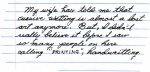 My wife has told me that
cursive writing is almost a lost
art anymore. But, I didn't
really believe it before I saw
so many people on here
calling "PRINTING", handwriting